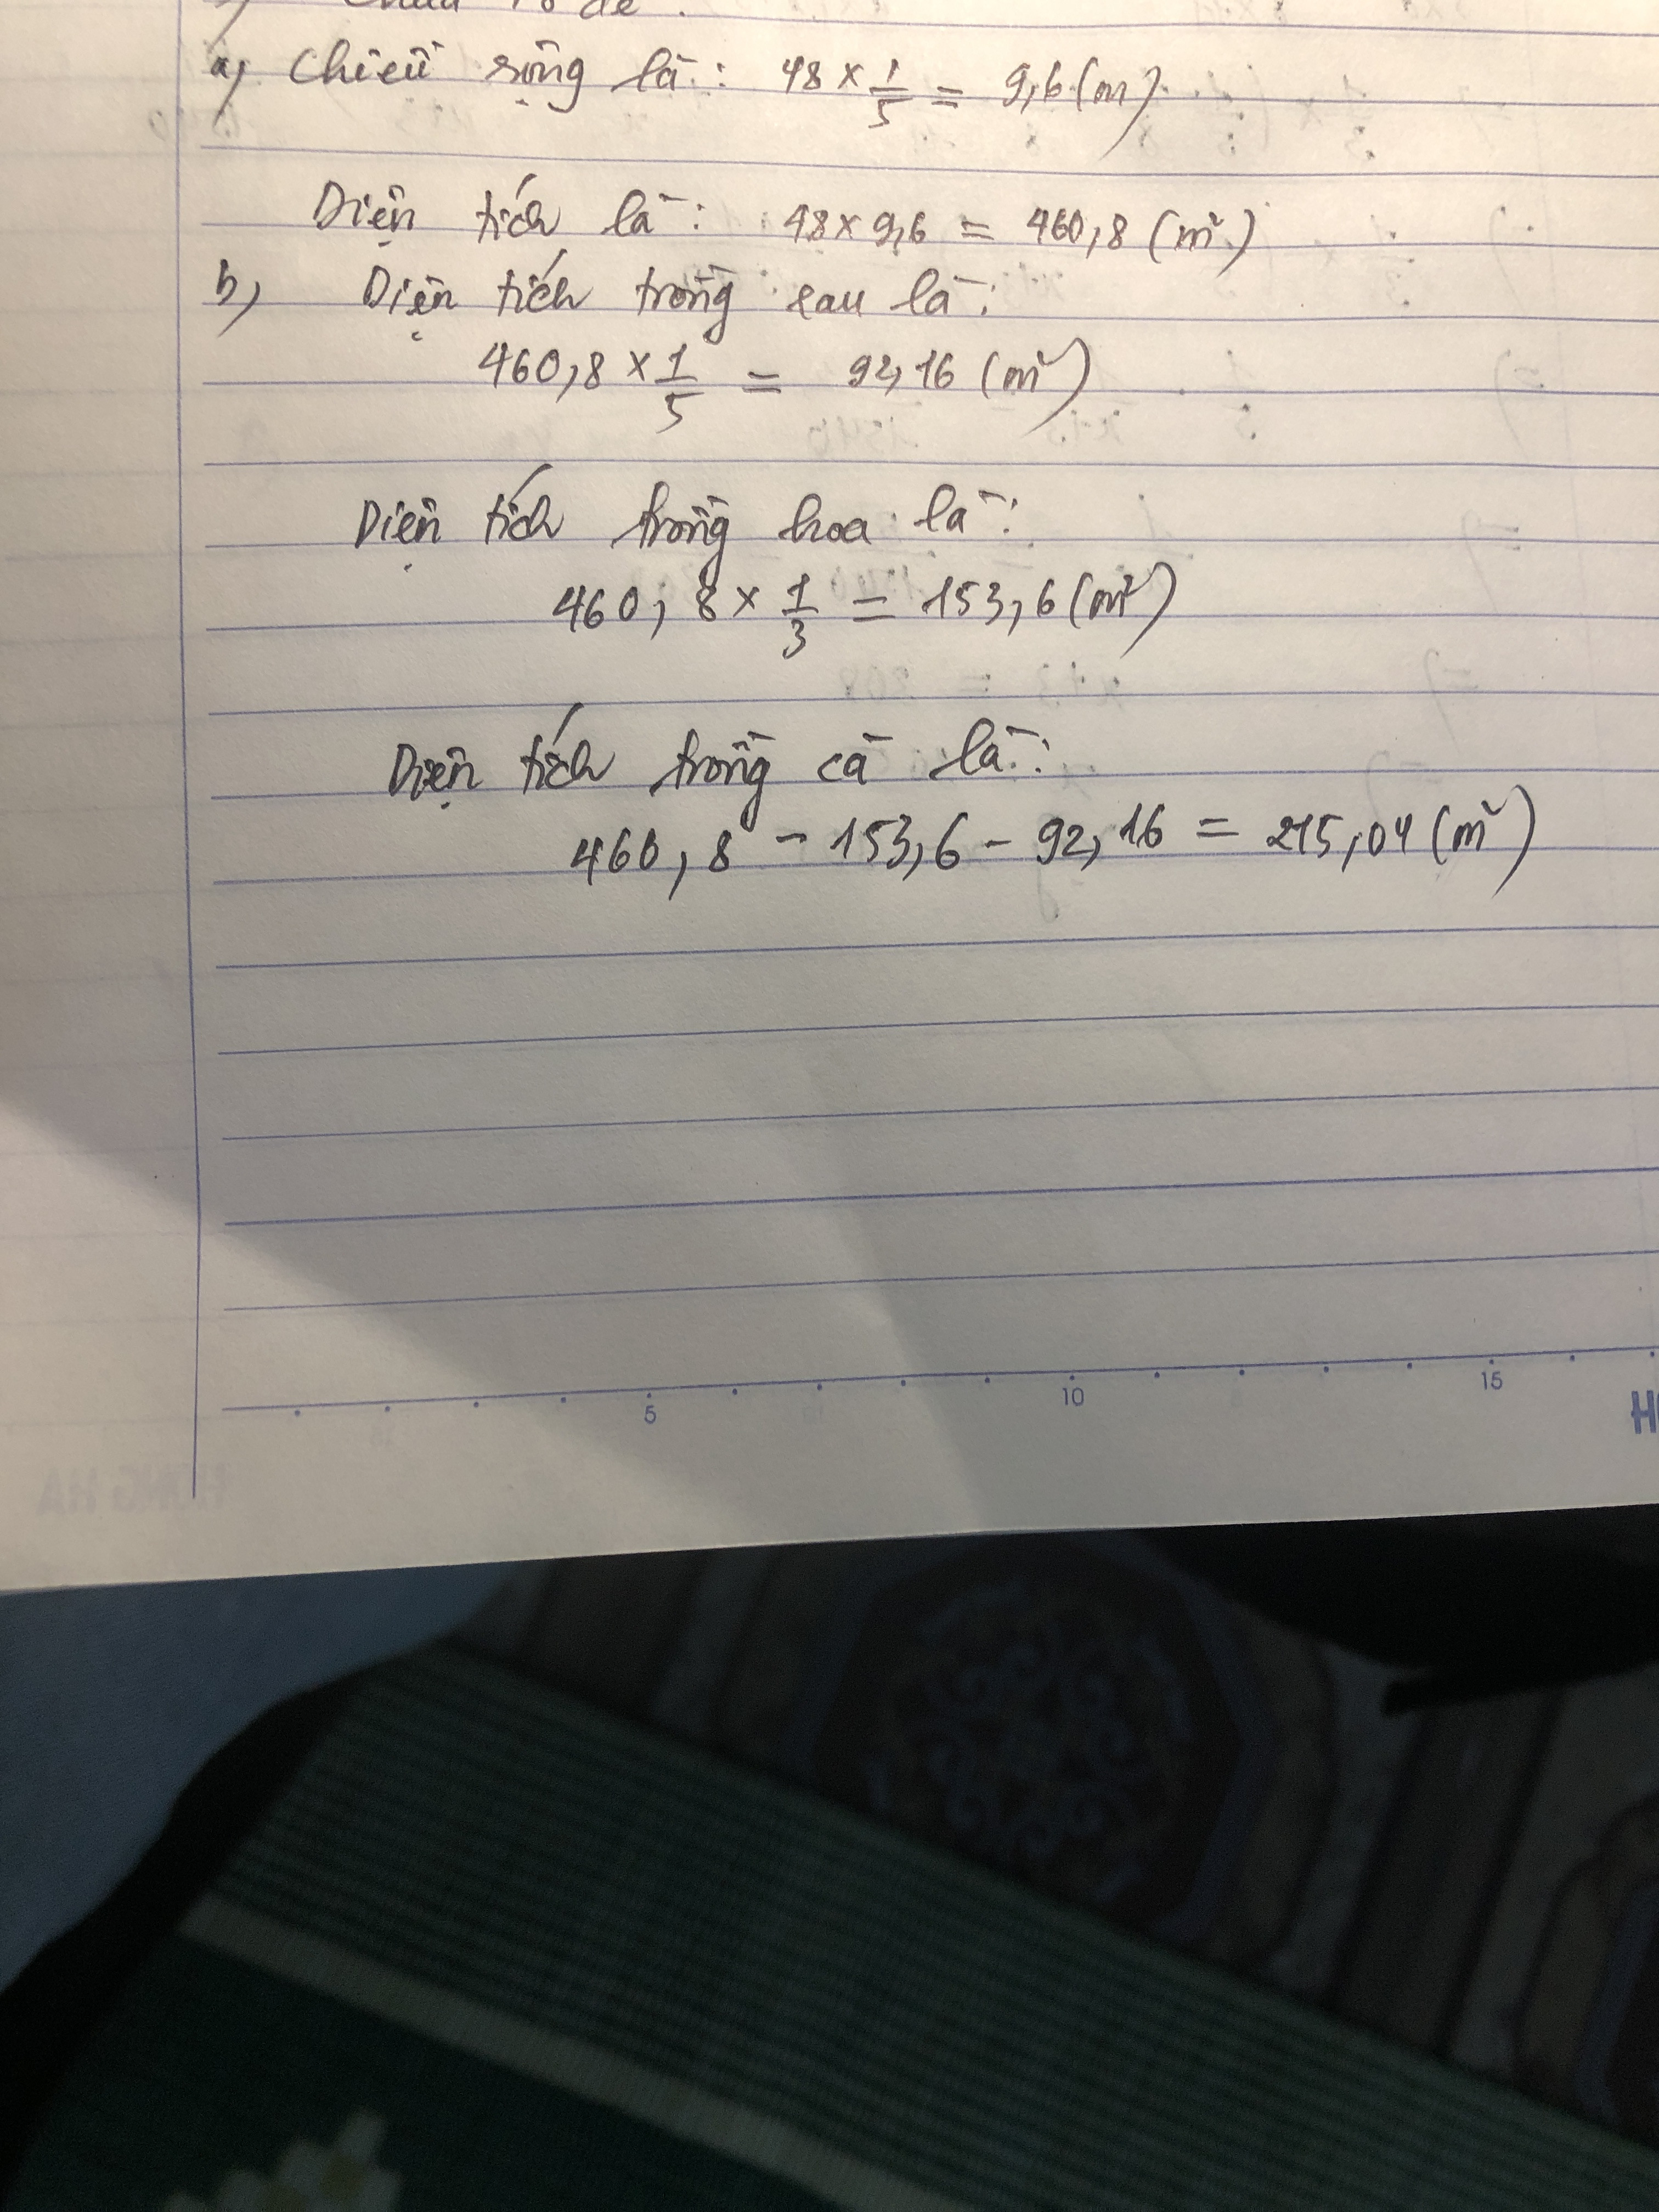 a) Chiều rộng là: 48 × 1/5 = 9,6 (m)
Diện tích là: 48 × 9,6 = 460,8 (m²)
b) Diện tích trồng rau là:
460,8 × 1/5 = 92,16 (m²)
Diện tích trồng hoa là:
460,8 × 1/3 = 153,6 (m²)
Diện tích trồng cà là:
460,8 - 153,6 - 92,16 = 215,04 (m²)
5 10 15